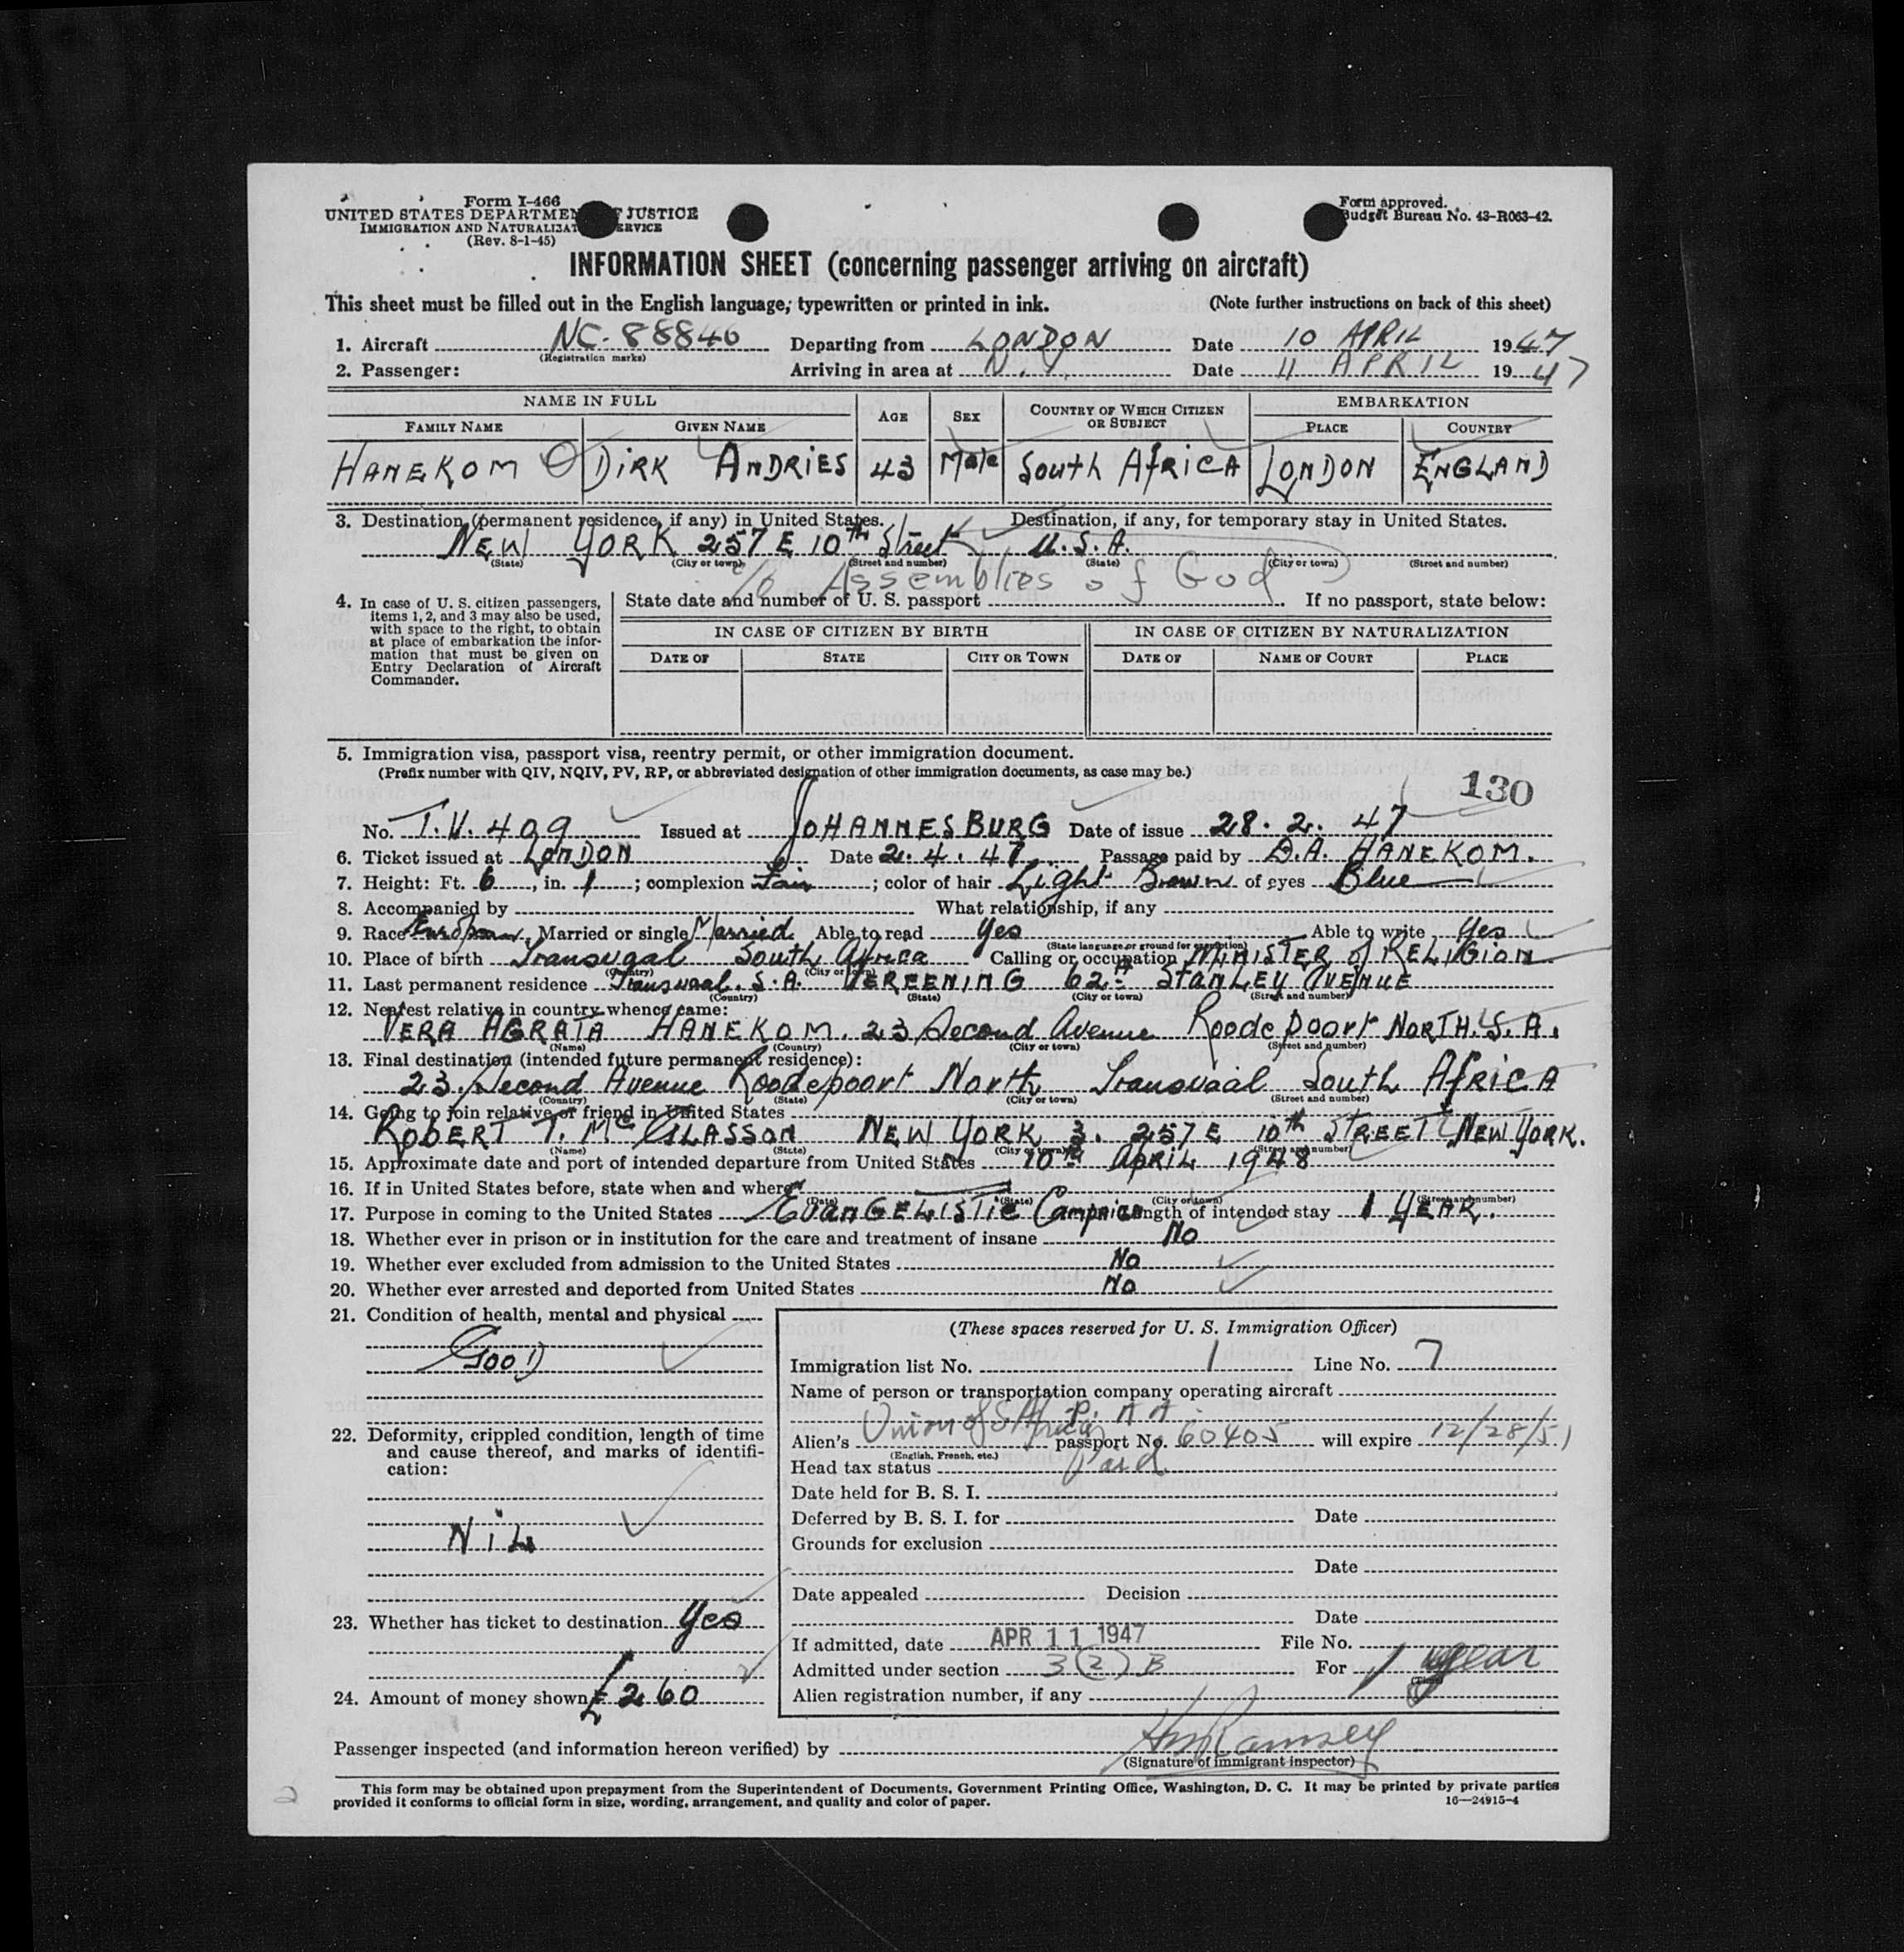 Form I-466
UNITED STATES DEPARTMENT OF JUSTICE
IMMIGRATION AND NATURALIZATION SERVICE
(Rev. 8-1-45)
Form approved.
Budget Bureau No. 43-R063-42.
INFORMATION SHEET (concerning passenger arriving on aircraft)
This sheet must be filled out in the English language, typewritten or printed in ink. (Note further instructions on back of this sheet)
1. Aircraft NC-88846 Departing from LONDON Date 10 APRIL 1947
(Registration marks)
2. Passenger: Arriving in area at N.Y. Date 11 APRIL 1947
NAME IN FULL AGE SEX COUNTRY OF WHICH CITIZEN OR SUBJECT EMBARKATION
FAMILY NAME GIVEN NAME PLACE COUNTRY
HANEKOM DIRK ANDRIES 43 Male South AfRICA LONDON ENGLAND
3. Destination (permanent residence, if any) in United States. Destination, if any, for temporary stay in United States.
NEW YORK 257 E 10th Street U.S.A.
(State) (City or town) (Street and number) (State) (City or town) (Street and number)
c/o Assemblies of God
4. In case of U. S. citizen passengers, items 1, 2, and 3 may also be used, with space to the right, to obtain at place of embarkation the information that must be given on Entry Declaration of Aircraft Commander.
State date and number of U. S. passport If no passport, state below:
IN CASE OF CITIZEN BY BIRTH IN CASE OF CITIZEN BY NATURALIZATION
DATE OF STATE CITY OR TOWN DATE OF NAME OF COURT PLACE
5. Immigration visa, passport visa, reentry permit, or other immigration document.
(Prefix number with QIV, NQIV, PV, RP, or abbreviated designation of other immigration documents, as case may be.)
130
No. T.V. 409 Issued at JOHANNESBURG Date of issue 28. 2. 47
6. Ticket issued at LONDON Date 2. 4. 47 Passage paid by D.A. HANEKOM.
7. Height: Ft. 6, in. 1; complexion Fair; color of hair Light Brown of eyes Blue
8. Accompanied by What relationship, if any
9. Race European, Married or single Married Able to read Yes Able to write Yes
(State language or ground for exemption)
10. Place of birth Transvaal South Africa Calling or occupation MINISTER of RELIGION
(Country) (City or town)
11. Last permanent residence Transvaal. S.A. VEREENING 62A STANLEY AVENUE
(Country) (State) (City or town) (Street and number)
12. Nearest relative in country whence came:
VERA AGRATA HANEKOM. 23 Second Avenue Roodepoort NORTH. S.A.
(Name) (Country) (City or town) (Street and number)
13. Final destination (intended future permanent residence):
23. Second Avenue Roodepoort North Transvaal South AfRICA
(Country) (State) (City or town) (Street and number)
14. Going to join relative or friend in United States
ROBERT T. McGLASSON NEW YORK 3. 257 E 10th STREET NEW YORK.
(Name) (State) (City or town) (Street and number)
15. Approximate date and port of intended departure from United States 10th APRIL 1948
16. If in United States before, state when and where
(Date) (State) (City or town) (Street and number)
17. Purpose in coming to the United States EVANGELISTIC Campaign Length of intended stay 1 YEAR.
18. Whether ever in prison or in institution for the care and treatment of insane No
19. Whether ever excluded from admission to the United States No
20. Whether ever arrested and deported from United States No
21. Condition of health, mental and physical
GOOD
22. Deformity, crippled condition, length of time and cause thereof, and marks of identification:
NiL
23. Whether has ticket to destination Yes
24. Amount of money shown £260
(These spaces reserved for U. S. Immigration Officer)
Immigration list No. 1 Line No. 7
Name of person or transportation company operating aircraft
P. A A
Alien's Union of S Africa passport No. 60405 will expire 12/28/51
(English, French, etc.)
Head tax status Paid
Date held for B. S. I.
Deferred by B. S. I. for Date
Grounds for exclusion
Date
Date appealed Decision
Date
If admitted, date APR 11 1947 File No.
Admitted under section 3(2)B For 1 year
(Time)
Alien registration number, if any
Passenger inspected (and information hereon verified) by Ramsey
(Signature of immigrant inspector)
This form may be obtained upon prepayment from the Superintendent of Documents, Government Printing Office, Washington, D. C. It may be printed by private parties
provided it conforms to official form in size, wording, arrangement, and quality and color of paper. 16—24915-4
2